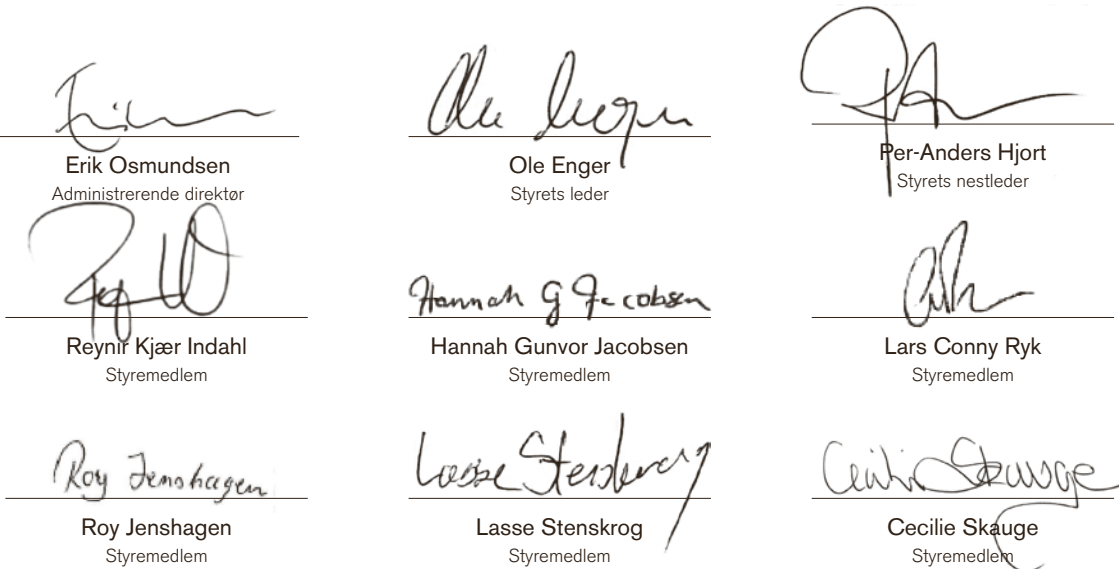 Erik Osmundsen
Administrerende direktør
Ole Enger
Styrets leder
Per-Anders Hjort
Styrets nestleder
Reynir Kjær Indahl
Styremedlem
Hannah G Jacobsen
Hannah Gunvor Jacobsen
Styremedlem
Lars Conny Ryk
Styremedlem
Roy Jenshagen
Roy Jenshagen
Styremedlem
Lasse Stenskrog
Styremedlem
Cecilie Skauge
Styremedlem